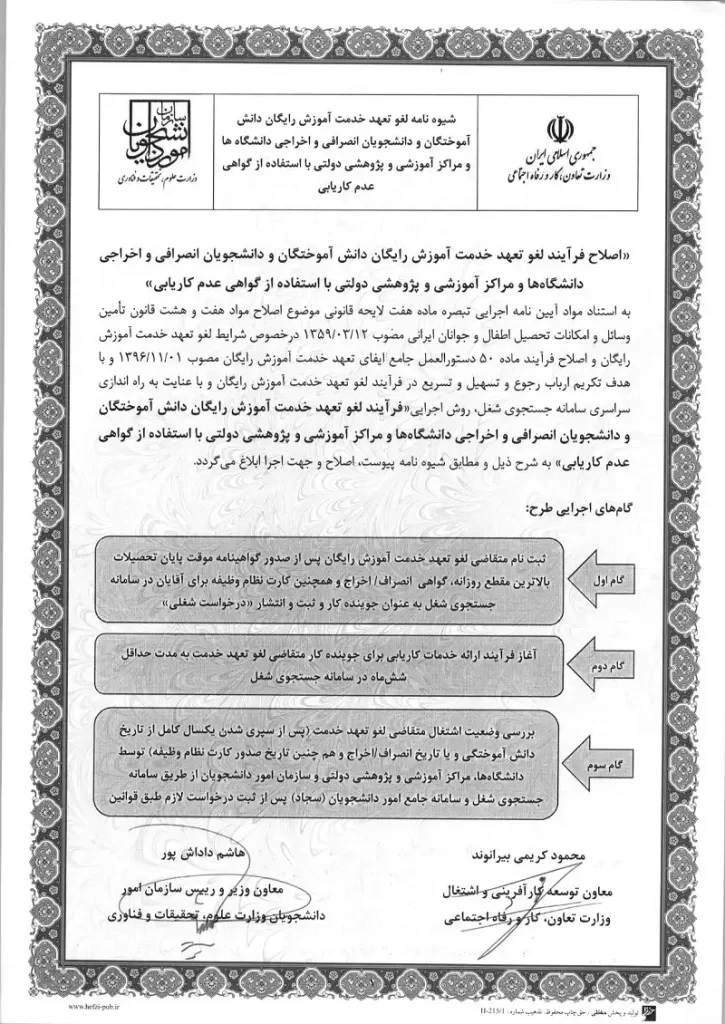 جمهوری اسلامی ایران
وزارت تعاون، کار و رفاه اجتماعی
شیوه نامه لغو تعهد خدمت آموزش رایگان دانش
آموختگان و دانشجویان انصرافی و اخراجی دانشگاه ها
و مراکز آموزشی و پژوهشی دولتی با استفاده از گواهی
عدم کاریابی
سازمان
امور دانشجویان
وزارت علوم، تحقیقات و فناوری
«اصلاح فرآیند لغو تعهد خدمت آموزش رایگان دانش آموختگان و دانشجویان انصرافی و اخراجی
دانشگاه‌ها و مراکز آموزشی و پژوهشی دولتی با استفاده از گواهی عدم کاریابی»
به استناد مواد آیین نامه اجرایی تبصره ماده هفت لایحه قانونی موضوع اصلاح مواد هفت و هشت قانون تأمین
وسائل و امکانات تحصیل اطفال و جوانان ایرانی مصوب ۱۳۵۹/۰۳/۱۲ درخصوص شرایط لغو تعهد خدمت آموزش
رایگان و اصلاح فرآیند ماده ۵۰ دستورالعمل جامع ایفای تعهد خدمت آموزش رایگان مصوب ۱۳۹۶/۱۱/۰۱ و با
هدف تکریم ارباب رجوع و تسهیل و تسریع در فرآیند لغو تعهد خدمت آموزش رایگان و با عنایت به راه اندازی
سراسری سامانه جستجوی شغل، روش اجرایی«فرآیند لغو تعهد خدمت آموزش رایگان دانش آموختگان
و دانشجویان انصرافی و اخراجی دانشگاه‌ها و مراکز آموزشی و پژوهشی دولتی با استفاده از گواهی
عدم کاریابی» به شرح ذیل و مطابق شیوه نامه پیوست، اصلاح و جهت اجرا ابلاغ می‌گردد.
گام‌های اجرایی طرح:
گام اول
ثبت نام متقاضی لغو تعهد خدمت آموزش رایگان پس از صدور گواهینامه موقت پایان تحصیلات
بالاترین مقطع روزانه، گواهی انصراف/ اخراج و همچنین کارت نظام وظیفه برای آقایان در سامانه
جستجوی شغل به عنوان جوینده کار و ثبت و انتشار «درخواست شغلی»
گام دوم
آغاز فرآیند ارائه خدمات کاریابی برای جوینده کار متقاضی لغو تعهد خدمت به مدت حداقل
شش‌ماه در سامانه جستجوی شغل
گام سوم
بررسی وضعیت اشتغال متقاضی لغو تعهد خدمت (پس از سپری شدن یکسال کامل از تاریخ
دانش آموختگی و یا تاریخ انصراف/اخراج و هم چنین تاریخ صدور کارت نظام وظیفه) توسط
دانشگاه‌ها، مراکز آموزشی و پژوهشی دولتی و سازمان امور دانشجویان از طریق سامانه
جستجوی شغل و سامانه جامع امور دانشجویان (سجاد) پس از ثبت درخواست لازم طبق قوانین
محمود کریمی بیرانوند
معاون توسعه کارآفرینی و اشتغال
وزارت تعاون، کار و رفاه اجتماعی
هاشم داداش پور
معاون وزیر و رییس سازمان امور
دانشجویان وزارت علوم، تحقیقات و فناوری
۱
تولید و پخش حفظی ، حق چاپ محفوظ. تذهیب شماره: H-215/1
www.hefzi-pub.ir